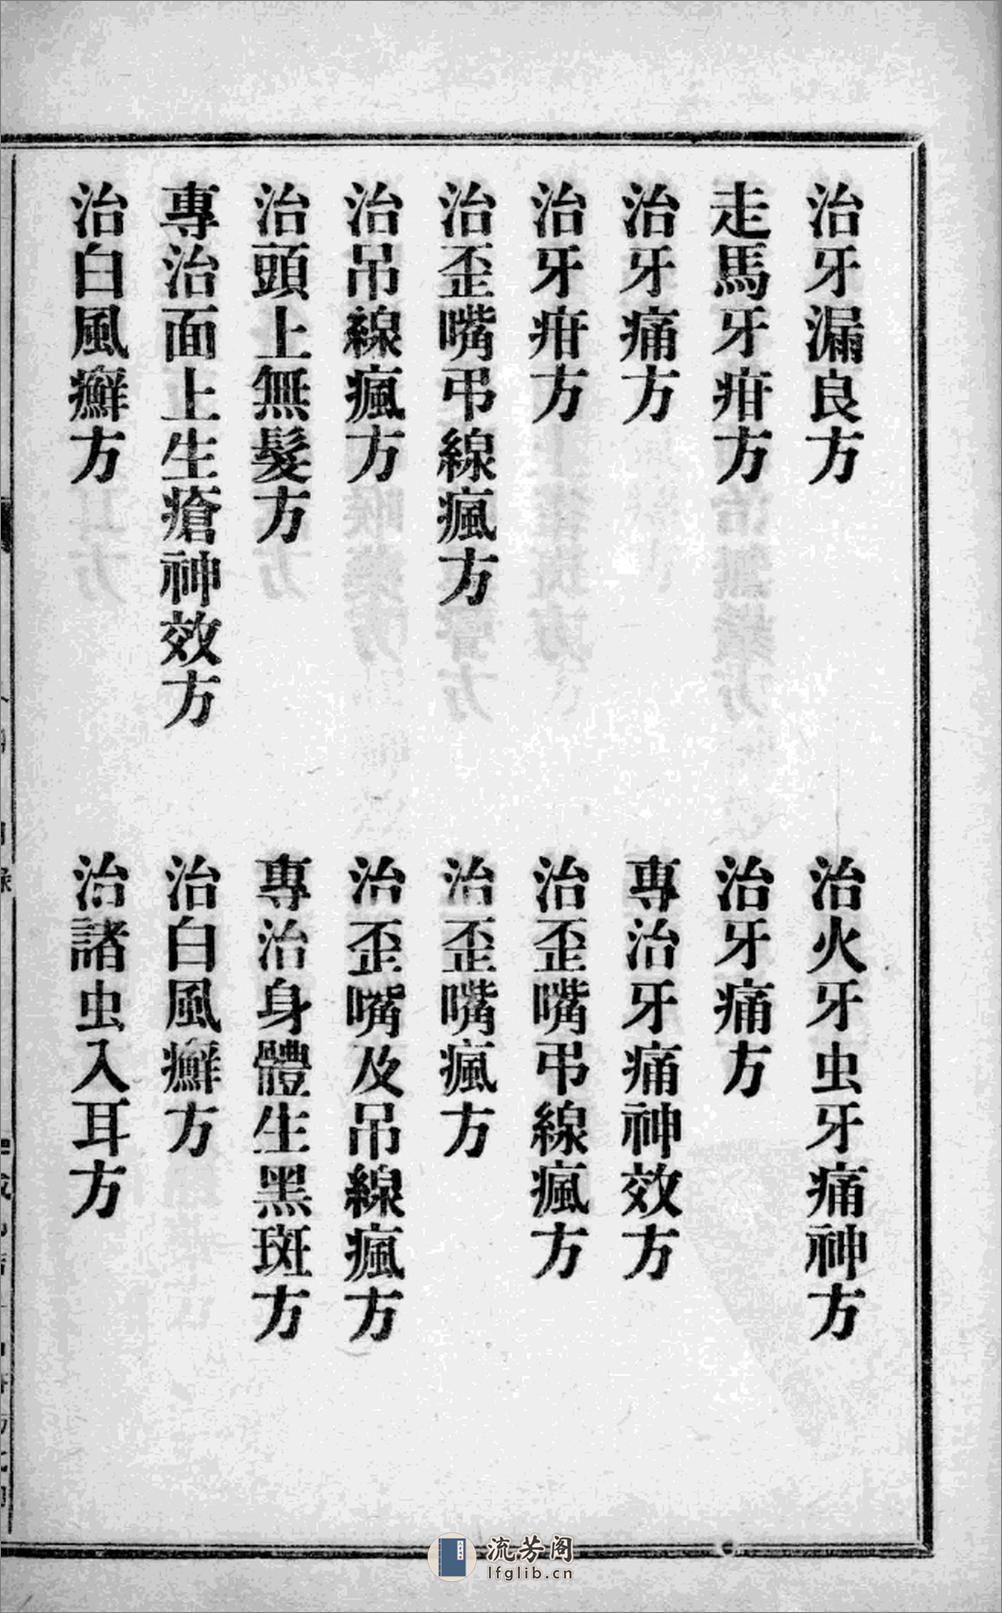 治牙漏良方
治火牙虫牙痛神方
走馬牙疳方
治牙痛方
治牙痛方
專治牙痛神效方
治牙疳方
治歪嘴弔線瘋方
治歪嘴弔線瘋方
治歪嘴瘋方
治吊線瘋方
治歪嘴及吊線瘋方
治頭上無髮方
專治身體生黑斑方
專治面上生瘡神效方
治白風癬方
治白風癬方
治諸虫入耳方
流芳阁
lfglib.cn